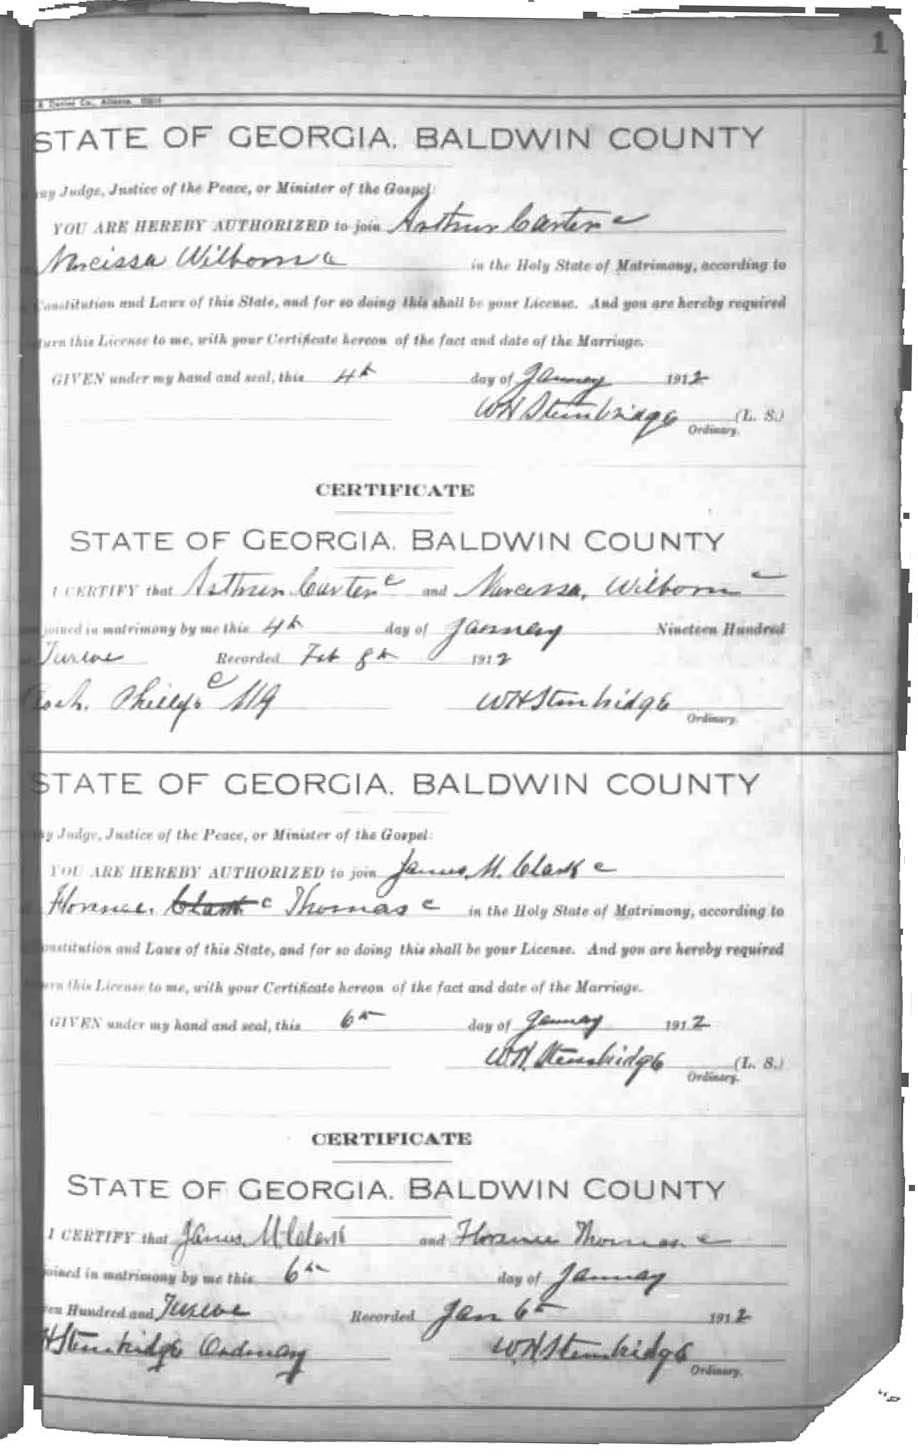 1
STATE OF GEORGIA, BALDWIN COUNTY
Judge, Justice of the Peace, or Minister of the Gospel:
YOU ARE HEREBY AUTHORIZED to join Arthur Carter c
Narcissa Wilborn c in the Holy State of Matrimony, according to
Constitution and Laws of this State, and for so doing this shall be your License. And you are hereby required
turn this License to me, with your Certificate hereon of the fact and date of the Marriage.
GIVEN under my hand and seal, this 4th day of January 1912
WH Stembridge (L. S.)
Ordinary.
CERTIFICATE
STATE OF GEORGIA, BALDWIN COUNTY
I CERTIFY that Arthur Carter c and Narcissa Wilborn c
joined in matrimony by me this 4th day of January Nineteen Hundred
Twelve Recorded Feb 8th 1912
Phillips c MG WH Stembridge
Ordinary.
STATE OF GEORGIA, BALDWIN COUNTY
Judge, Justice of the Peace, or Minister of the Gospel:
YOU ARE HEREBY AUTHORIZED to join James M. Clark c
Florence Clark c Thomas c in the Holy State of Matrimony, according to
onstitution and Laws of this State, and for so doing this shall be your License. And you are hereby required
urn this License to me, with your Certificate hereon of the fact and date of the Marriage.
GIVEN under my hand and seal, this 6th day of January 1912
WH Stembridge (L. S.)
Ordinary.
CERTIFICATE
STATE OF GEORGIA, BALDWIN COUNTY
I CERTIFY that James M Clark and Florence Thomas c
joined in matrimony by me this 6th day of January
een Hundred and Twelve Recorded Jan 6th 1912
H Stembridge Ordinary W.H Stembridge
Ordinary.